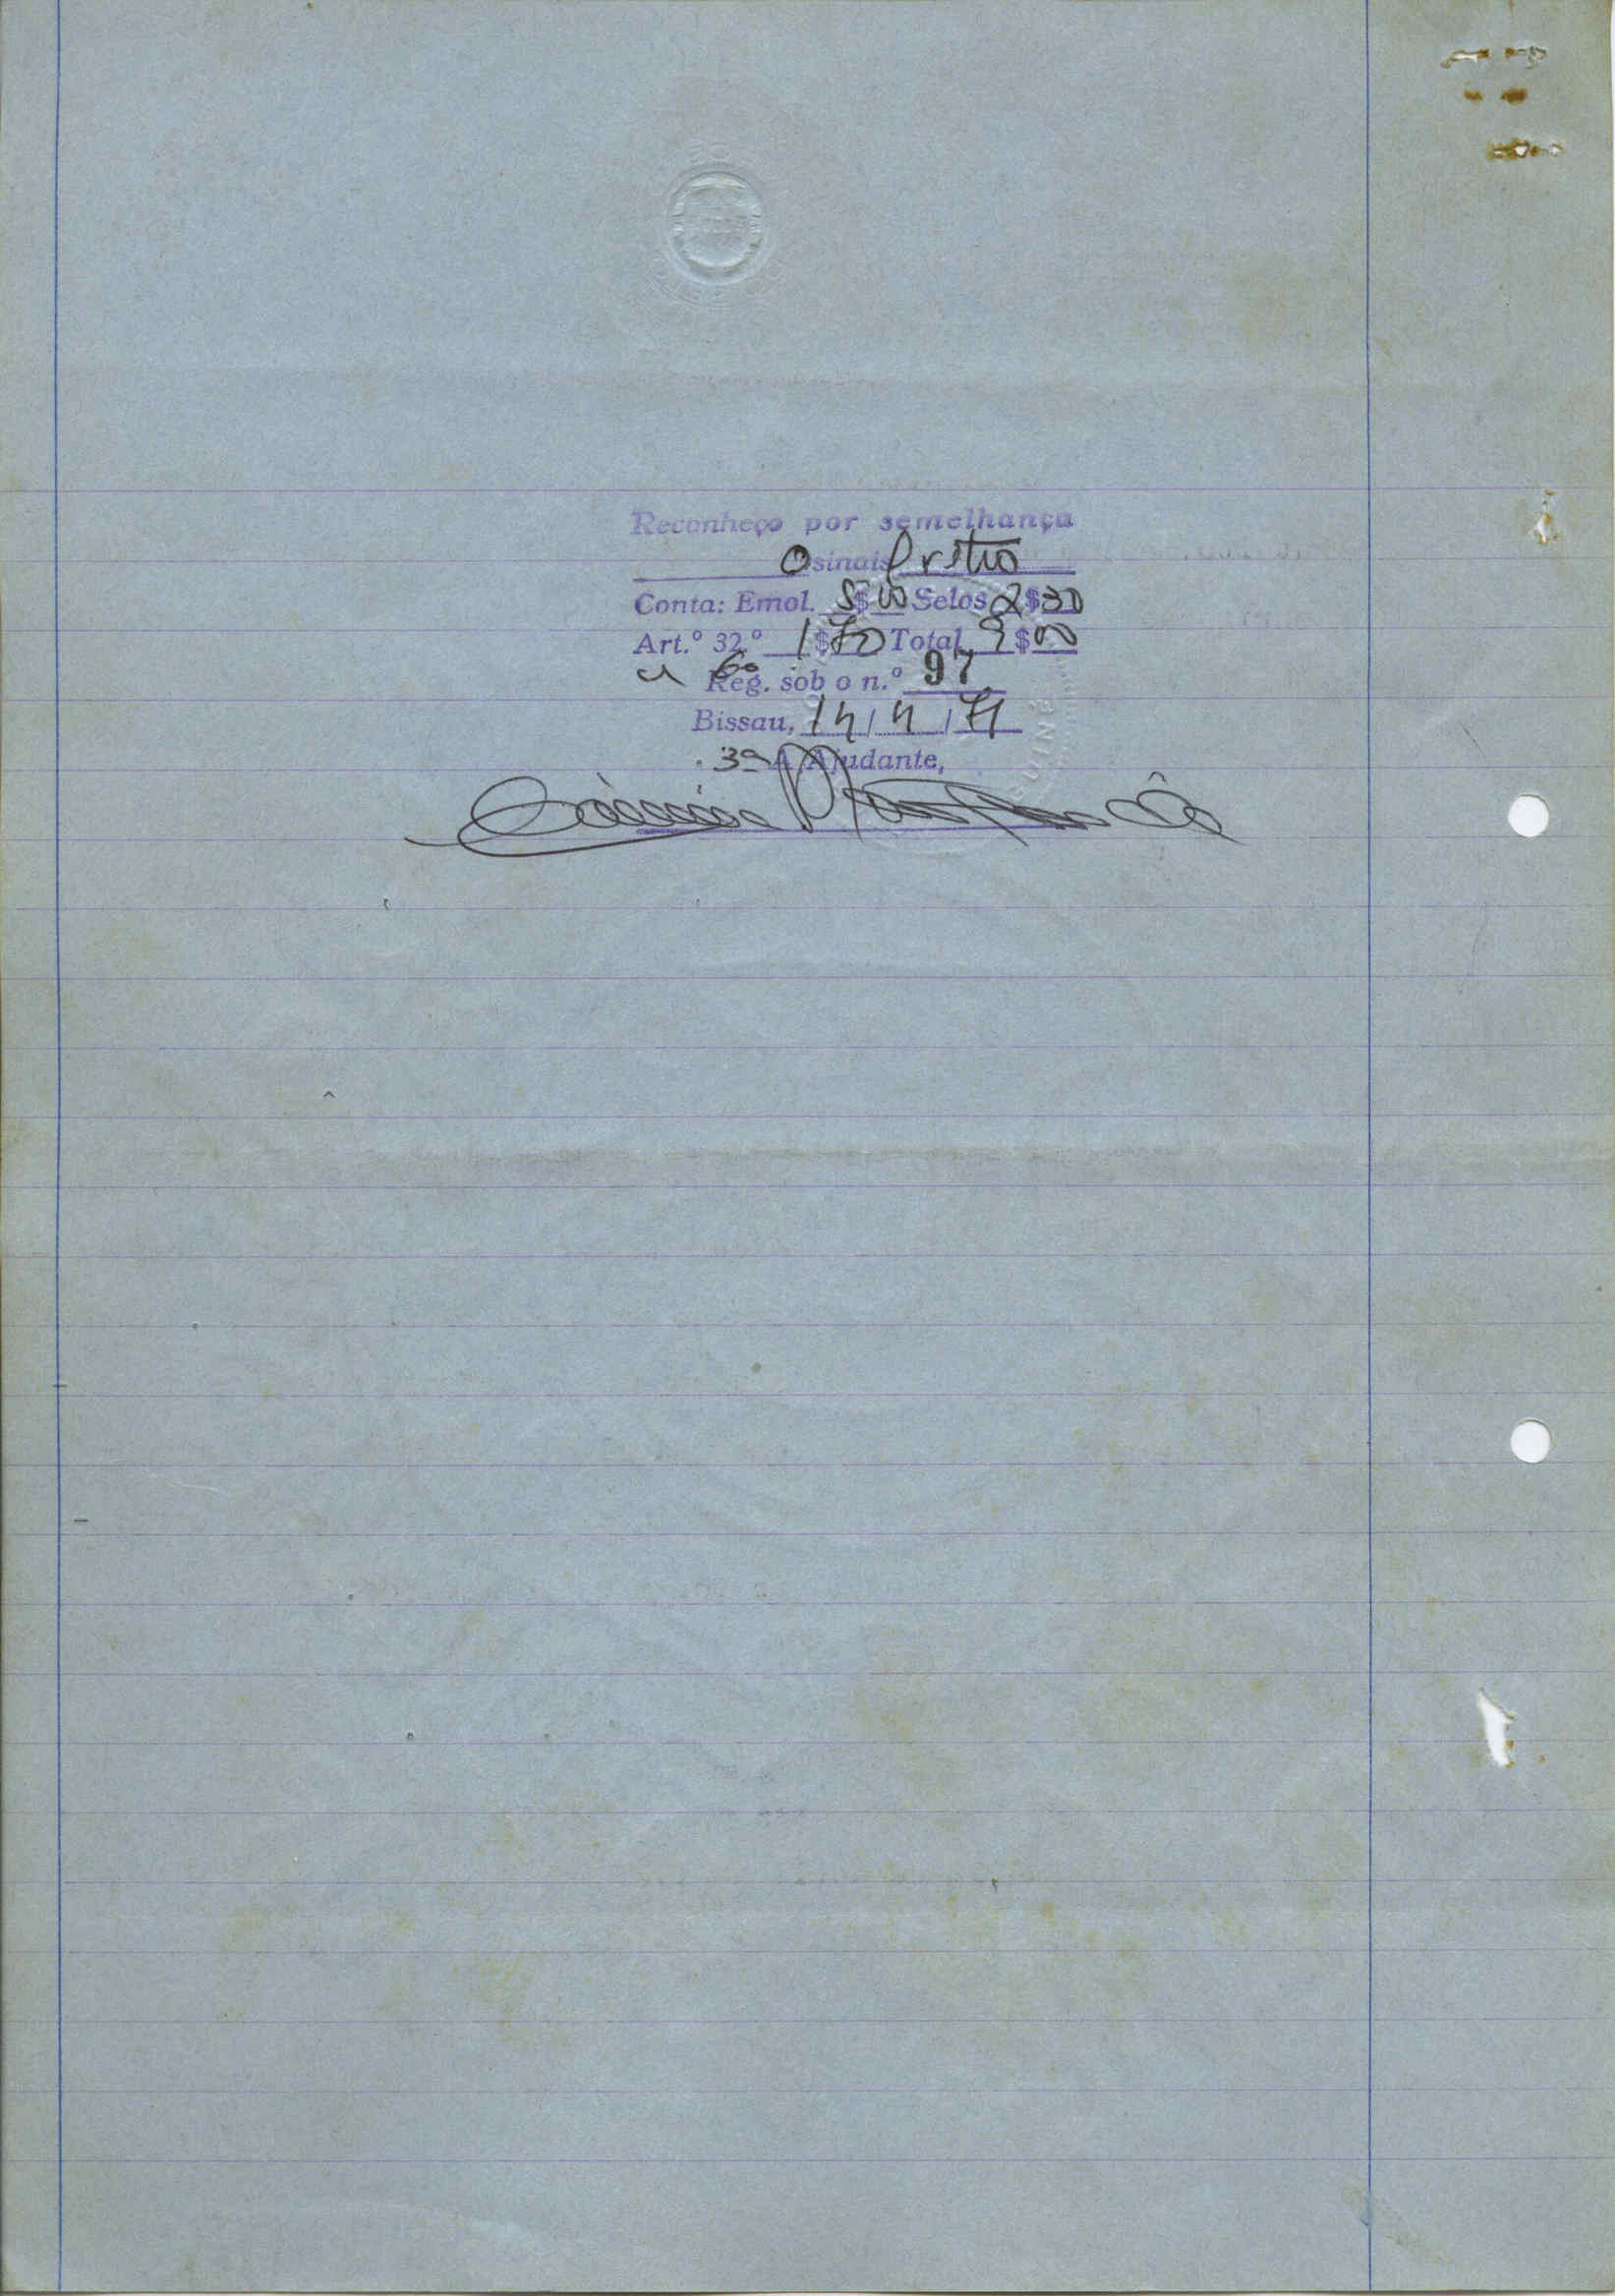 Reconheço por semelhança
O sinais retro
Conta: Emol. 5$00 Selos 2$30
Art.º 32.º 1$70 Total 9$00
Reg. sob o n.º 97
Bissau, 14/4/71
3ª A Ajudante,
GUINÉ